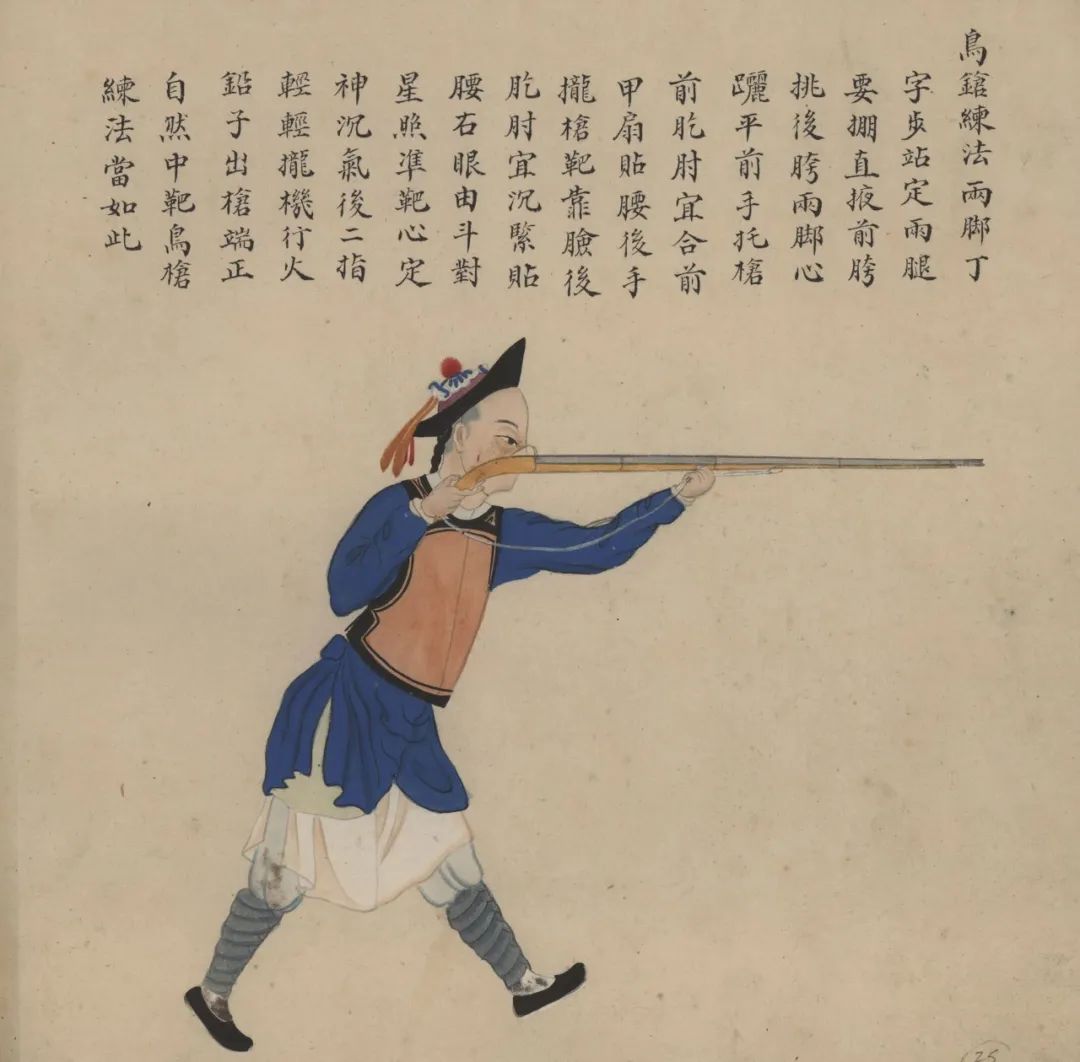 鳥鎗練法兩脚丁
字步站定兩腿
要掤直掖前胯
挑後胯兩脚心
躧平前手托槍
前肐肘宜合前
甲扇貼腰後手
攏槍靶靠臉後
肐肘宜沉緊貼
腰右眼由斗對
星照凖靶心定
神沉氣後二指
輕輕攏機行火
鉛子出槍端正
自然中靶鳥槍
練法當如此
25